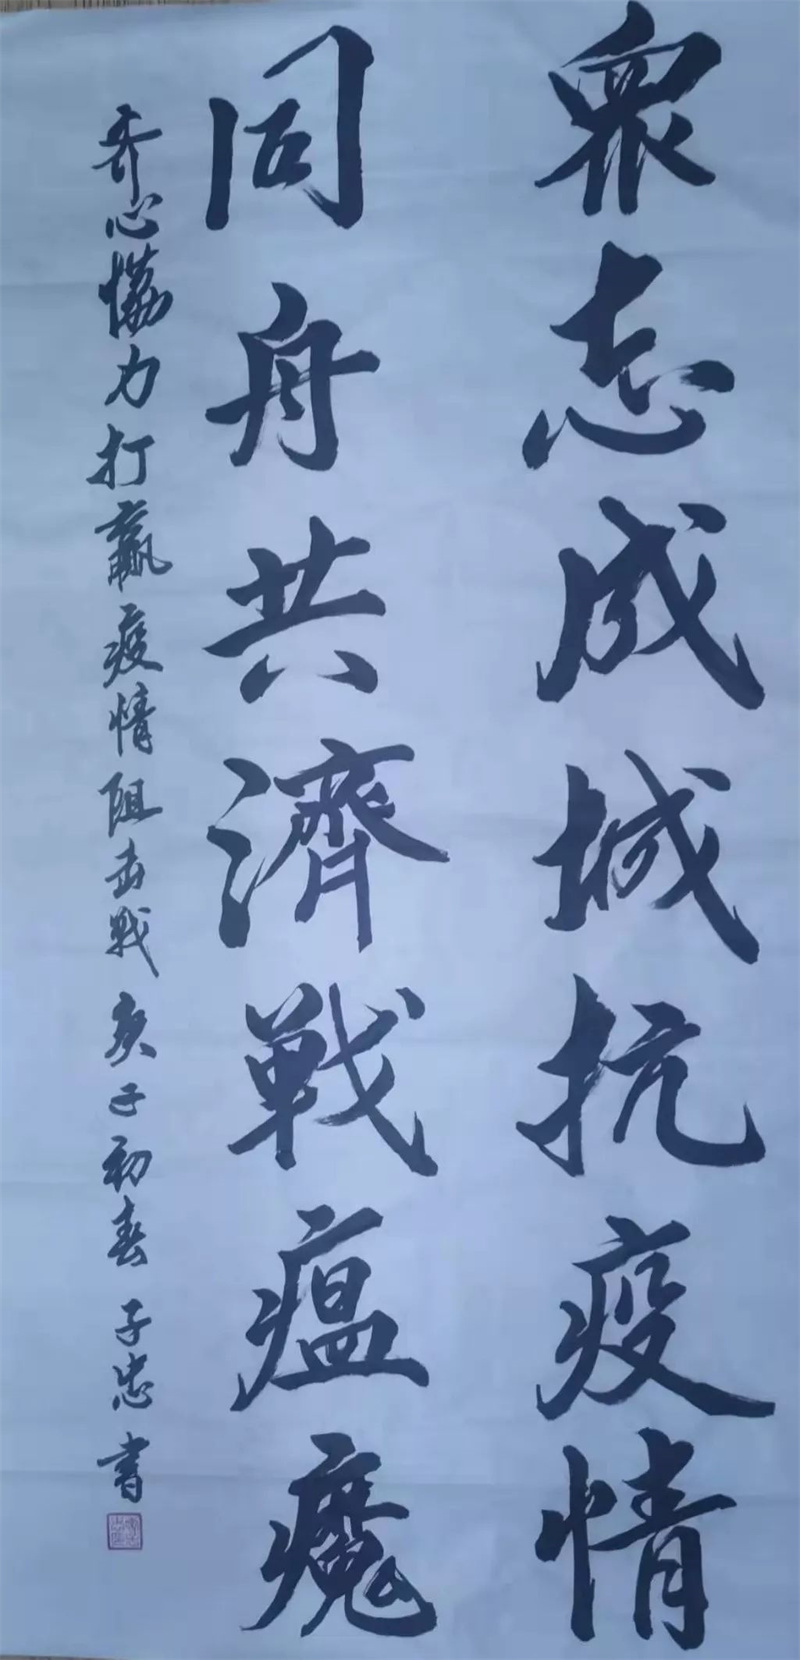 眾志成城抗疫情
同舟共濟戰瘟魔
齐心協力打赢疫情阻击戰 庚子初春 子忠書